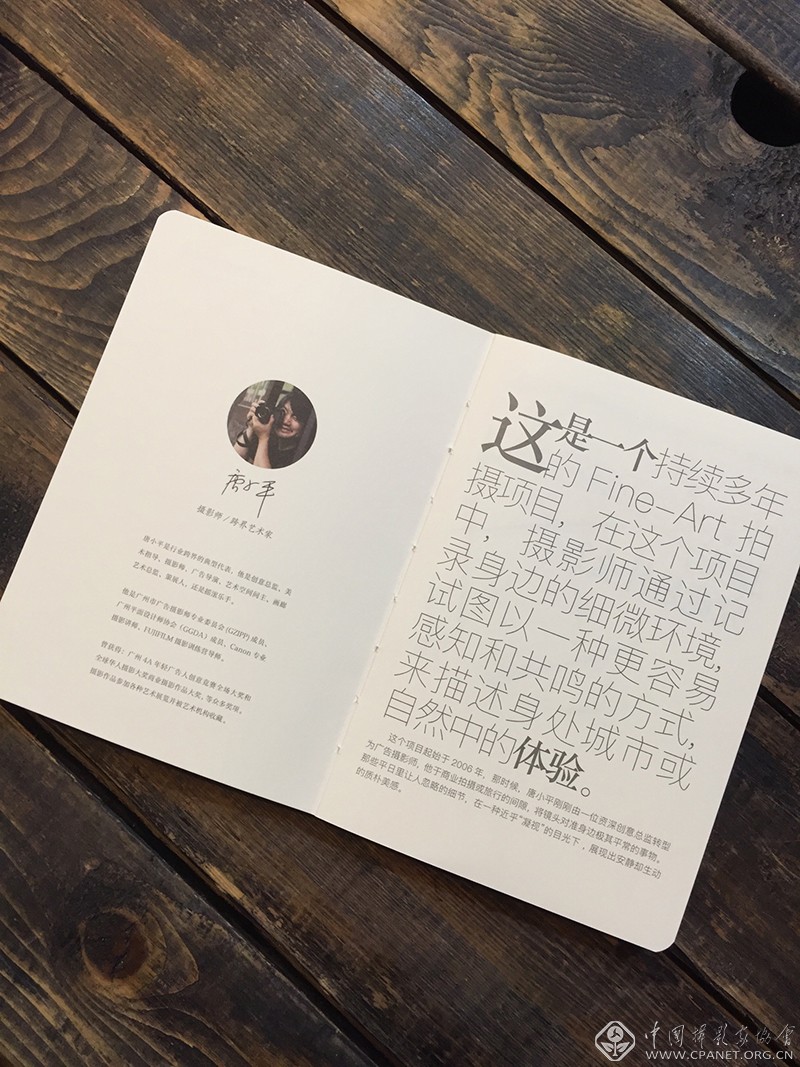 唐小平
摄影师/跨界艺术家
唐小平是行业跨界的典型代表，他是创意总监、美
术指导、摄影师、广告导演、艺术空间园主、画廊
艺术总监、策展人，还是摇滚乐手。
他是广州市广告摄影师专业委员会(GZIPP)成员、
广州平面设计师协会（GGDA）成员、Canon 专业
摄影讲师、FUJIFILM 摄影训练营导师。
曾获得：广州 4A 年轻广告人创意竞赛全场大奖和
全球华人摄影大奖商业摄影作品大奖，等众多奖项。
摄影作品参加各种艺术展览并被艺术机构收藏。
这是一个持续多年
的 Fine-Art 拍
摄项目，在这个项目
中，摄影师通过记
录身边的细微环境，
试图以一种更容易
感知和共鸣的方式，
来描述身处城市或
自然中的体验。
这个项目起始于 2006 年，那时候，唐小平刚刚由一位资深创意总监转型
为广告摄影师，他于商业拍摄或旅行的间隙，将镜头对准身边极其平常的事物。
那些平日里让人忽略的细节，在一种近乎“凝视”的目光下，展现出安静却生动
的质朴美感。
中国摄影家协会
WWW.CPANET.ORG.CN